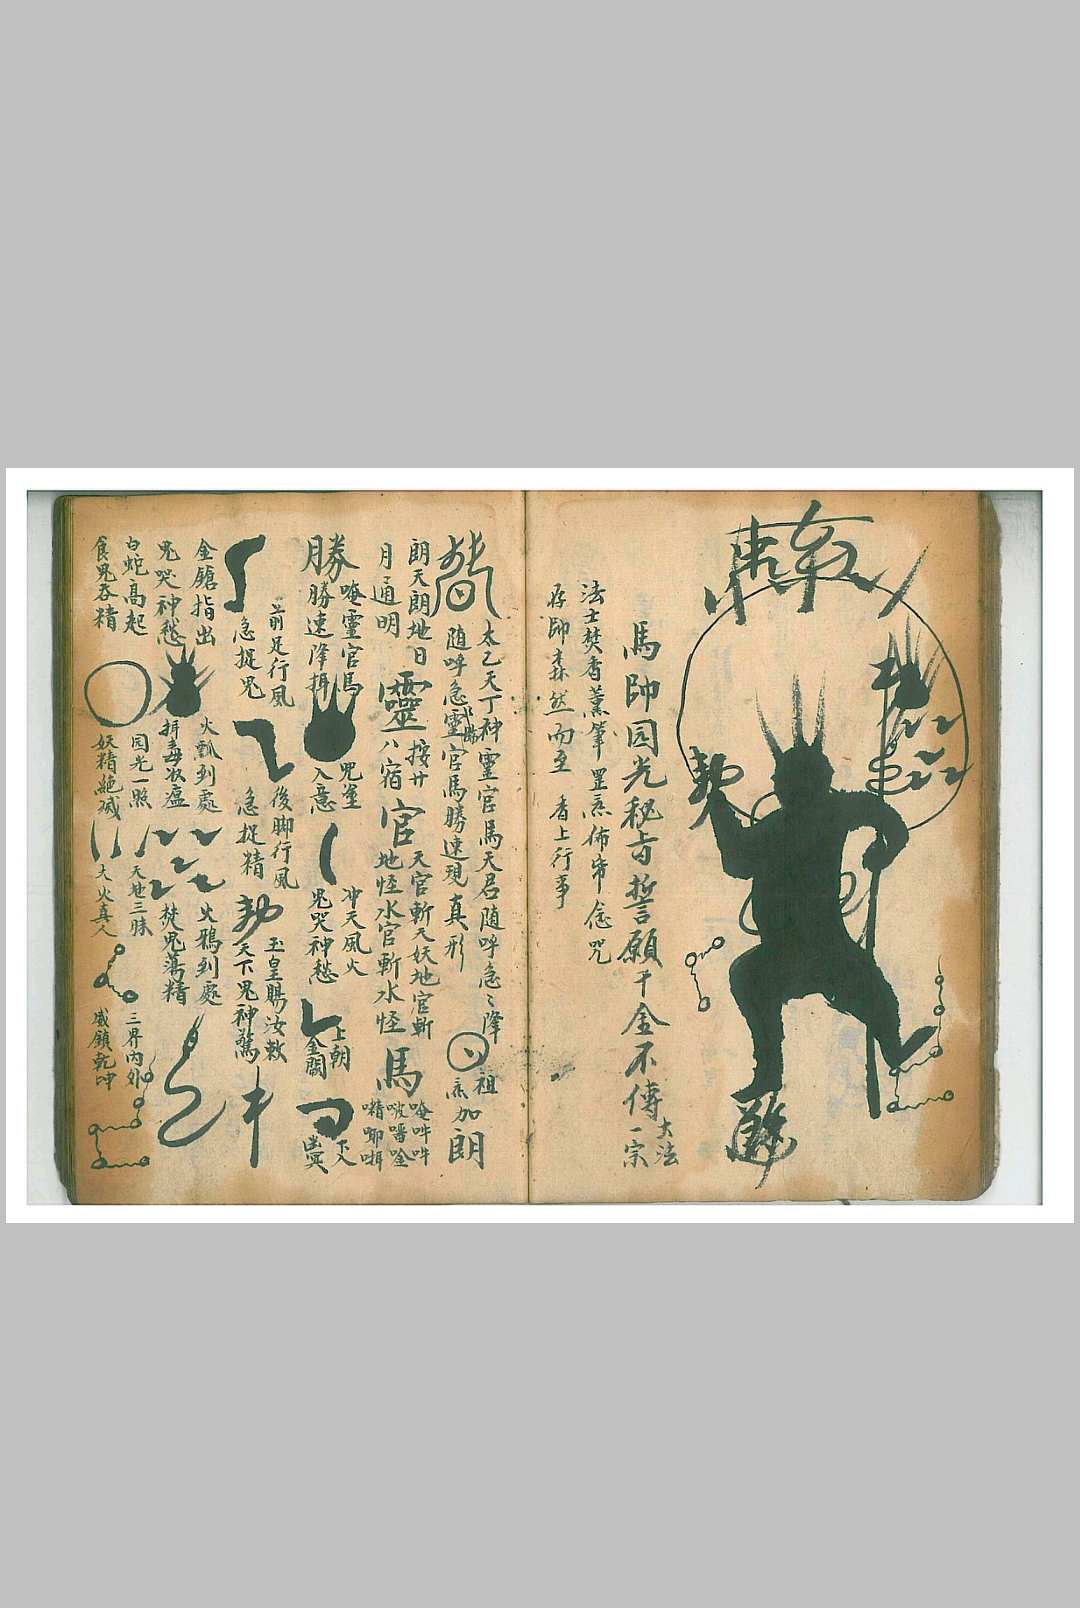 馬帥园光秘旨誓願千金不傳一宗
大法
法士焚香薰筆罡炁佈帋念咒
存師森然而至 香上行事
太乙天丁神靈官馬天君随呼急〻降
随呼急靈官馬勝速現真形
祖炁加
朗
朗天朗地日
月通明
靈
按廿
八宿
官
天官斬天妖地官斬
地怪水官斬水怪
馬
唵吽吽
勝
唵靈官馬
勝速降揖
咒筆
入意
冲天風火
鬼哭神愁
上朝
金闕
下入
幽冥
前足行風
急捉鬼
後脚行風
急捉精
勅
玉皇賜汝敕
天下鬼神驚
金鎗指出
鬼哭神愁
火瓢到處
火鴉到處
焚鬼蕩精
白蛇高起
食鬼吞精
园光一照
妖精絶滅
天地三昧
大火真人
三界内外
威鎮乾坤